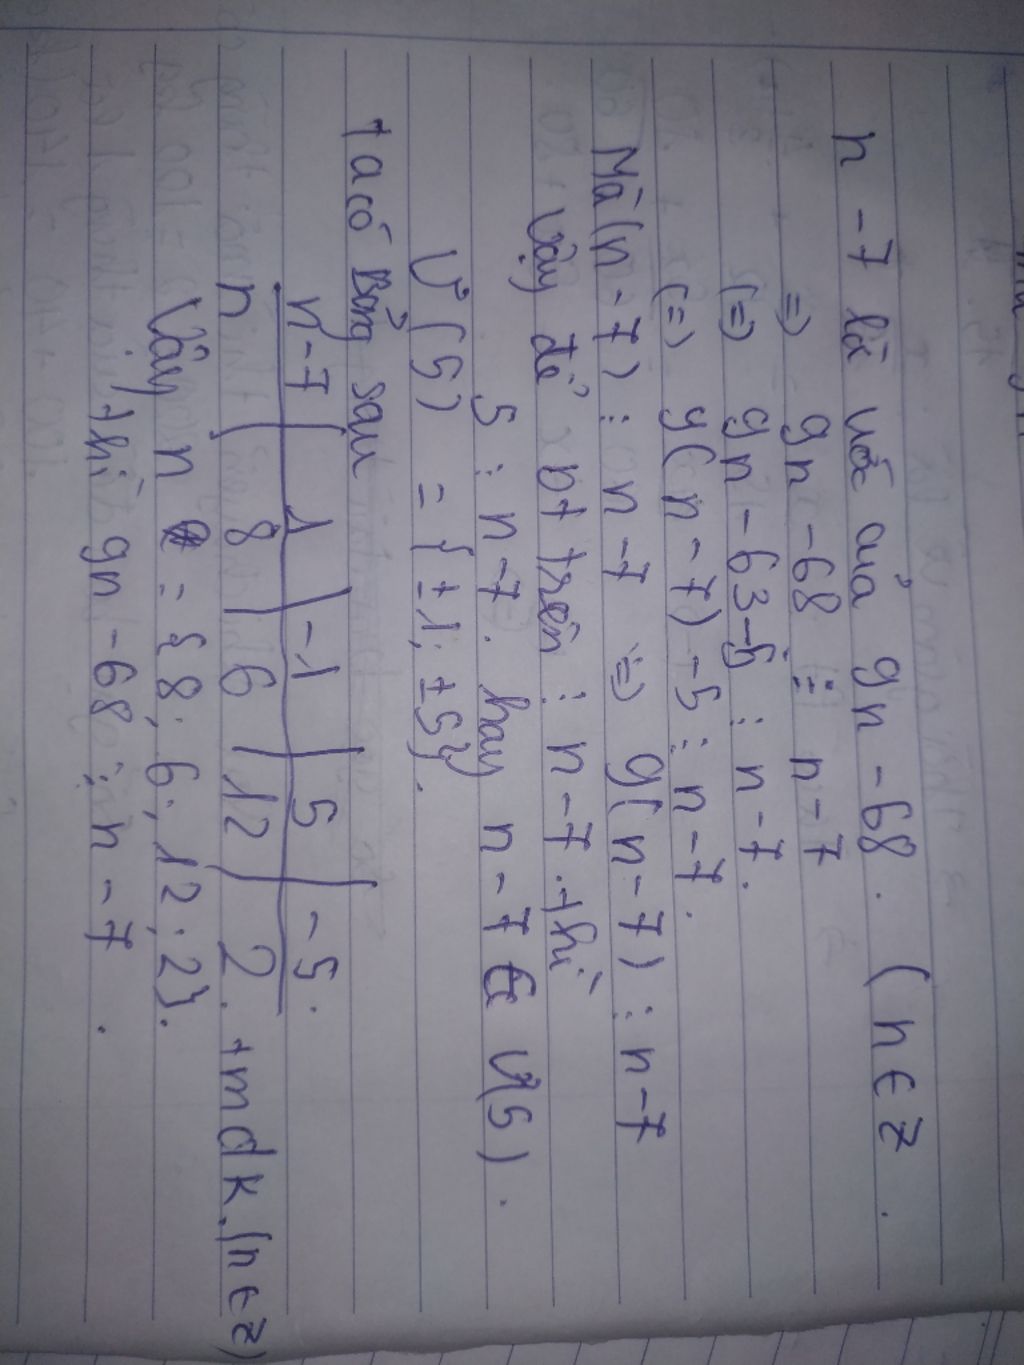 n - 7 là ước của 9n - 68. (n ∈ Z.
=> 9n - 68 ⋮ n - 7
(=) 9n - 63 - 5 ⋮ n - 7.
(=) 9(n - 7) - 5 ⋮ n - 7.
Mà (n - 7) ⋮ n - 7 => 9(n - 7) ⋮ n - 7
Vậy để bt trên ⋮ n - 7. thì
5 ⋮ n - 7. hay n - 7 ∈ Ư(5).
Ư(5) = {±1; ±5}.
ta có Bảng sau
n - 7 | 1 | -1 | 5 | -5.
n | 8 | 6 | 12 | 2. tmdk. (n ∈ Z)
Vậy n = {8; 6; 12; 2}.
thì 9n - 68 ⋮ n - 7.